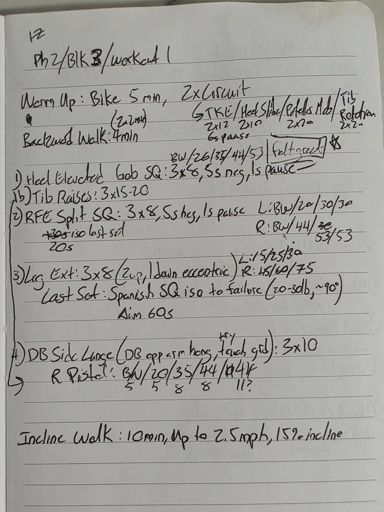 Ph2/Blk3/Workout 1
Warm Up: Bike 5min, 2x Circuit
GTKE/Heel Slides/Patella Mob/Tib Rotation
2x12 2x10 2x20 2x20
6s pause
(2x2min)
Backward Walk: 4min
BW/26/35/44/53 Felt great
1) Heel Elevated Gob SQ: 3x8, 5s neg, 1s pause
1b) Tib Raises: 3x15-20
2) RFE Split SQ: 3x8, 5s neg, 1s pause L: BW/20/30/30
iso last set R: BW/44/53/53
20s
3) Leg Ext: 3x8 (2up, 1 down eccentric) L: 15/25/30
R: 45/60/75
Last Set: Spanish SQ iso to failure (20-30lb, ~90°)
Aim 60s
try
4) DB Side Lunge (DB opp arm hang, touch grd): 3x10
R Pistol: BW/20/35/44/44
5 5 8 8 11?
Incline Walk: 10min, Up to 2.5mph, 15% incline